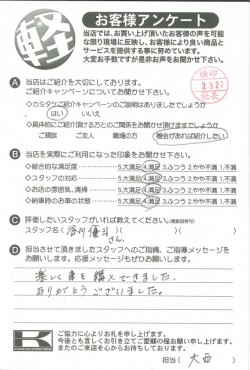 軽
お客様アンケート
当店では、お買い上げ頂いたお客様の声を可能
な限り現場に反映し、お客様により良い商品と
サービスを提供する事に努めています。
大変お手数ですが是非お声をお聞かせ下さい。
検印
3.3.27
A 当店はご紹介を大切にしております。
ご紹介キャンペーンについてお聞かせ下さい。
◇カミタケご紹介キャンペーンのご説明はありましたでしょうか
はい いいえ
◇具体的にご紹介頂ける方とのご関係をお聞かせ頂けますでしょうか
ご親族 ご友人 職場の方 機会があれば紹介したい
B 当店を実際にご利用になった印象をお聞かせ下さい。
◇総合的な満足度 5.大満足 4.満足 3.ふつう 2.やや不満 1.不満
◇スタッフの対応 5.大満足 4.満足 3.ふつう 2.やや不満 1.不満
◇お店の雰囲気、清掃 5.大満足 4.満足 3.ふつう 2.やや不満 1.不満
◇納車時のお車の状態 5.大満足 4.満足 3.ふつう 2.やや不満 1.不満
C 評価したいスタッフがいれば教えてください。(複数回答可)
スタッフ名( 谷川 さん )
D 担当させて頂きましたスタッフへのご指摘、ご指導メッセージを
お願いします。応援メッセージもぜひお願いします。
楽しく車を購入できました。
ありがとうございました。
K
ご協力に心よりお礼を申し上げます。
今後とも宜しくお引き立てご愛顧の程お願い申し上げます。
またのご来店を心からお待ちしております。
担当( 大西 )